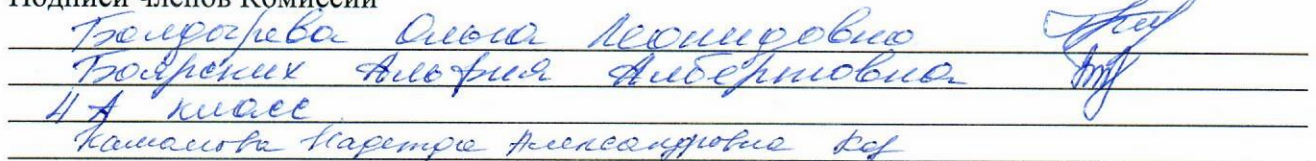 Подписи членов Комиссии
Болдырева Ольга Леонидовна
Боярских Альфия Альбертовна
4 А класс
Надежда Александровна